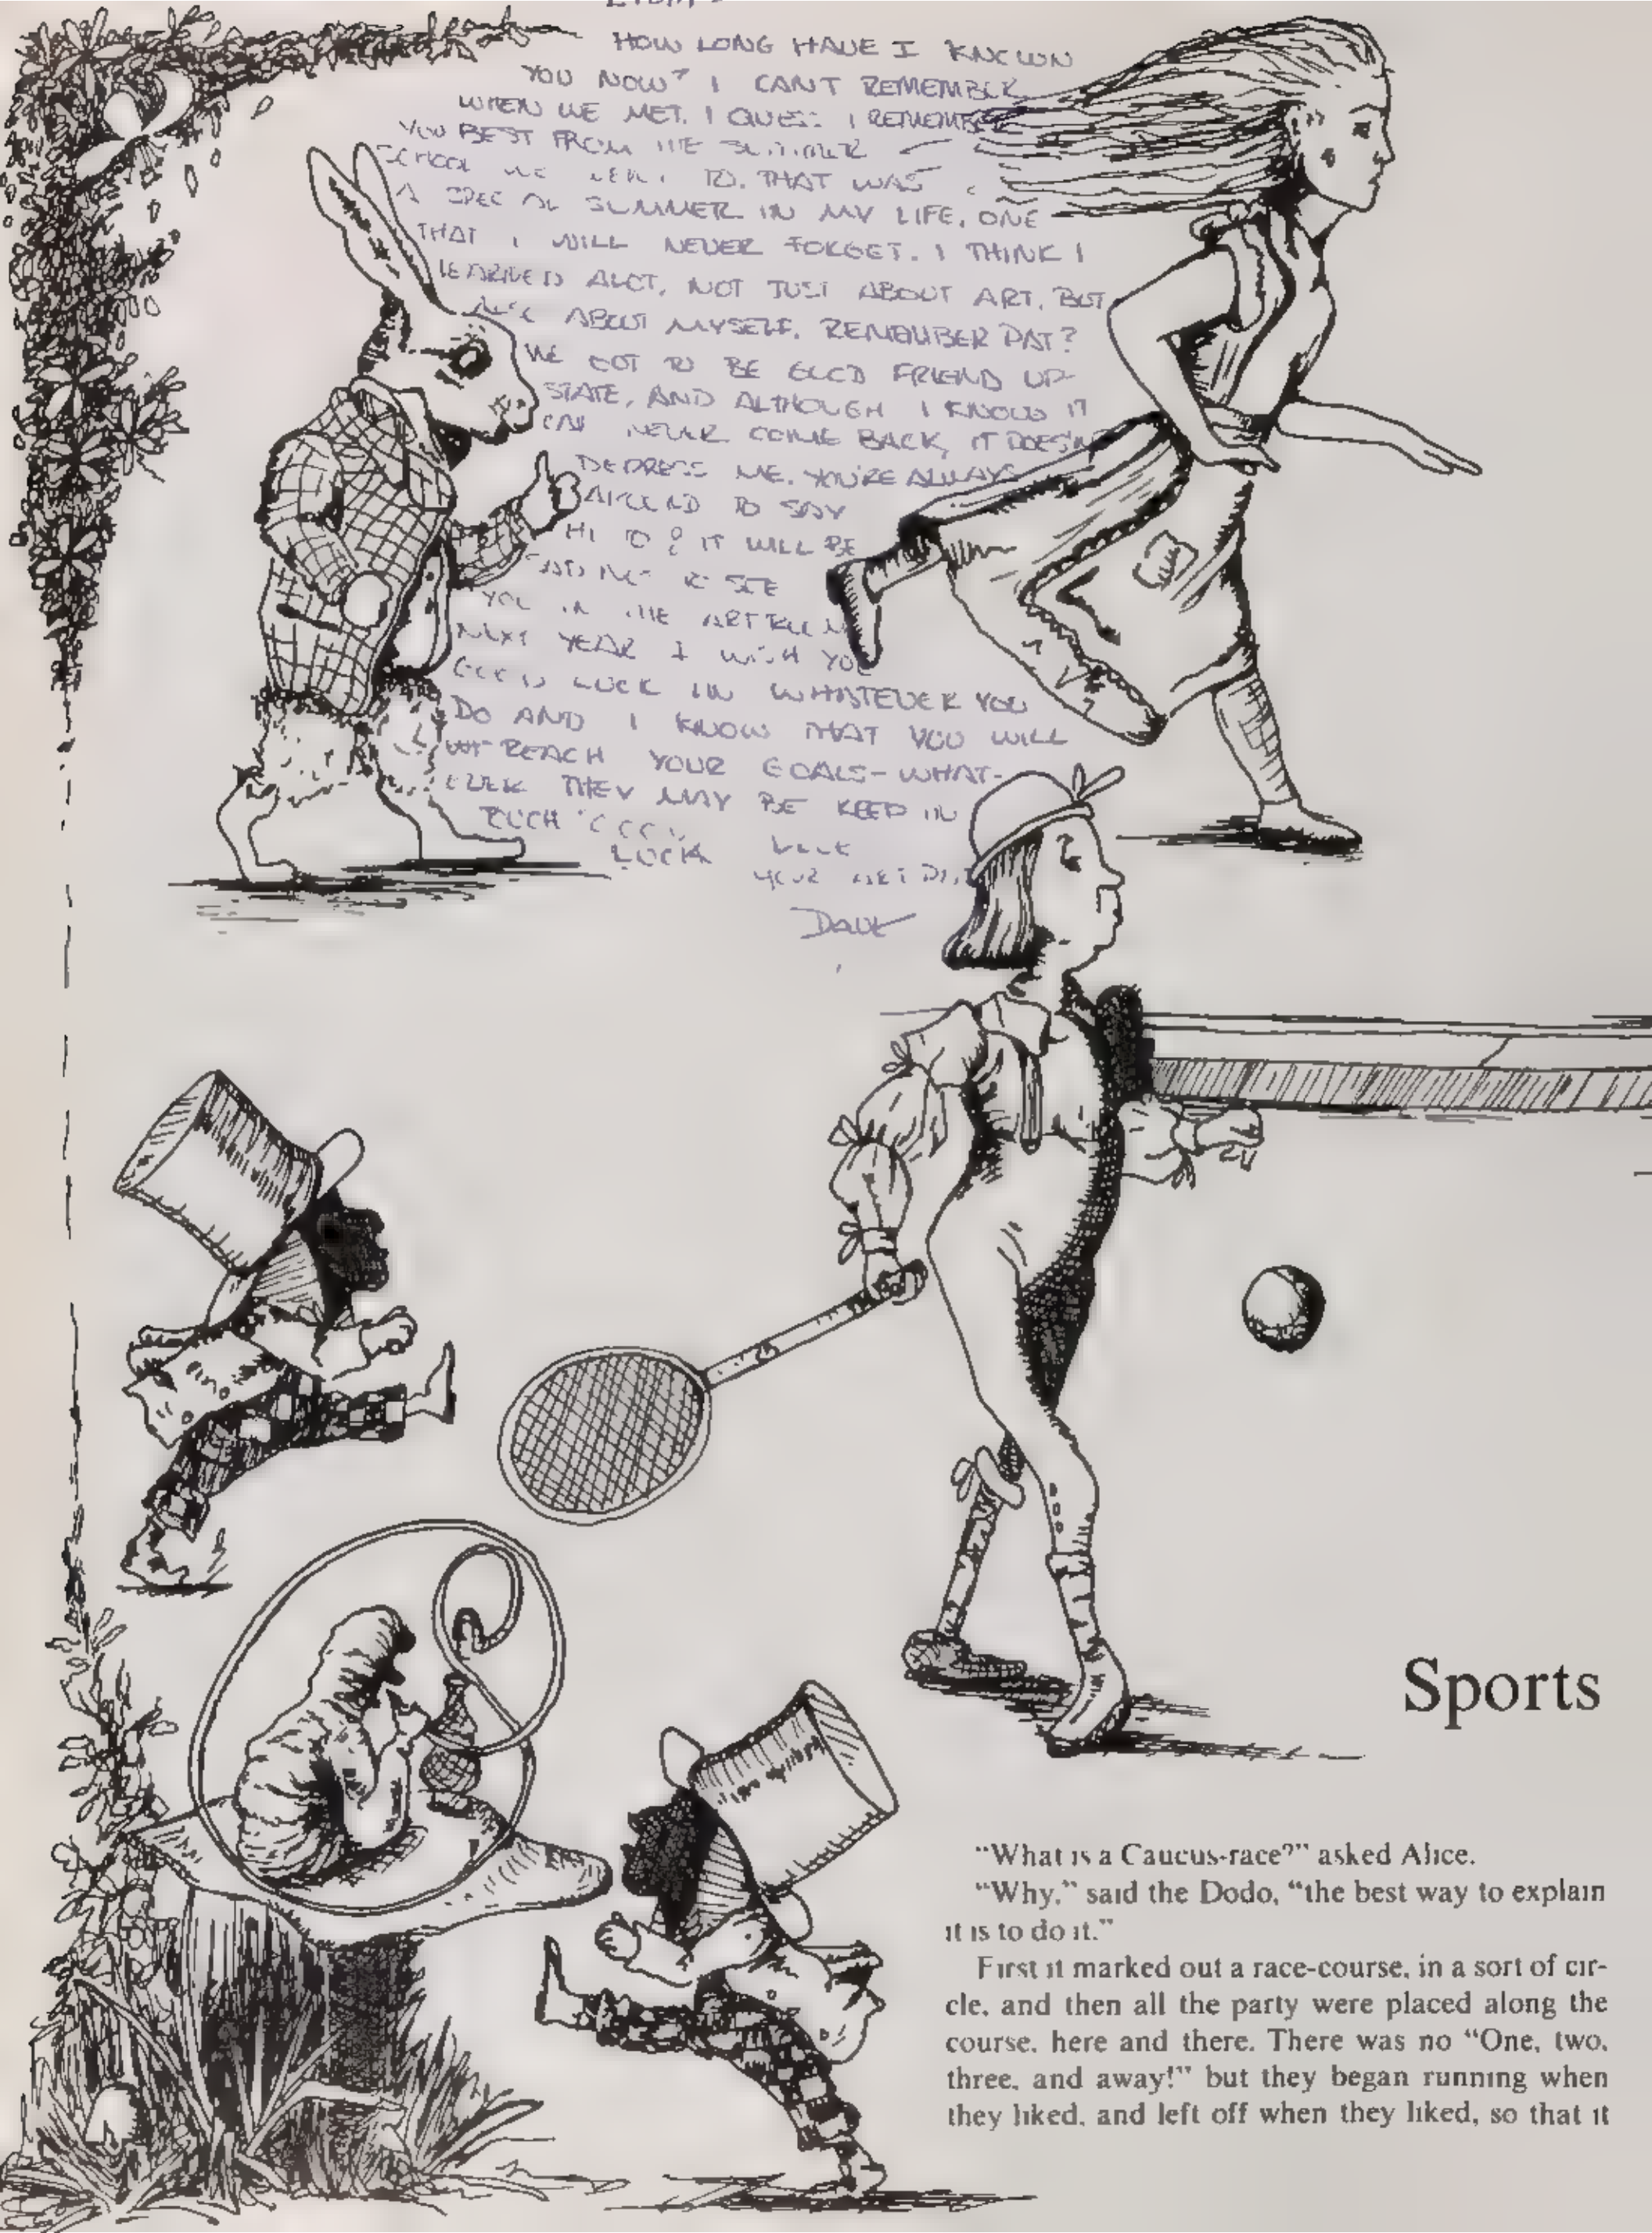 HOW LONG HAVE I KNOWN
YOU NOW? I CAN'T REMEMBER
WHEN WE MET. I GUESS I REMEMBER
YOU BEST FROM THE SUMMER
SCHOOL WE WENT TO. THAT WAS
A SPECIAL SUMMER IN MY LIFE, ONE
THAT I WILL NEVER FORGET. I THINK I
LEARNED ALOT, NOT JUST ABOUT ART, BUT
ALSO ABOUT MYSELF. REMEMBER PAT?
WE GOT TO BE GOOD FRIEND UP-
STATE, AND ALTHOUGH I KNOW IT
CAN NEVER COME BACK, IT DOESN'T
DEPRESS ME. YOU'RE ALWAYS
AROUND TO SAY
HI TO & IT WILL BE
SAD NOT TO SEE
YOU IN THE ART
NEXT YEAR I WISH YOU
GOOD LUCK IN WHATEVER YOU
DO AND I KNOW THAT YOU WILL
REACH YOUR GOALS-WHAT-
EVER THEY MAY BE KEEP IN
TOUCH GOOD
LUCK
YOUR
DAVE
Sports
“What is a Caucus-race?” asked Alice.
“Why,” said the Dodo, “the best way to explain
it is to do it.”
First it marked out a race-course, in a sort of cir-
cle, and then all the party were placed along the
course, here and there. There was no “One, two,
three, and away!” but they began running when
they liked, and left off when they liked, so that it